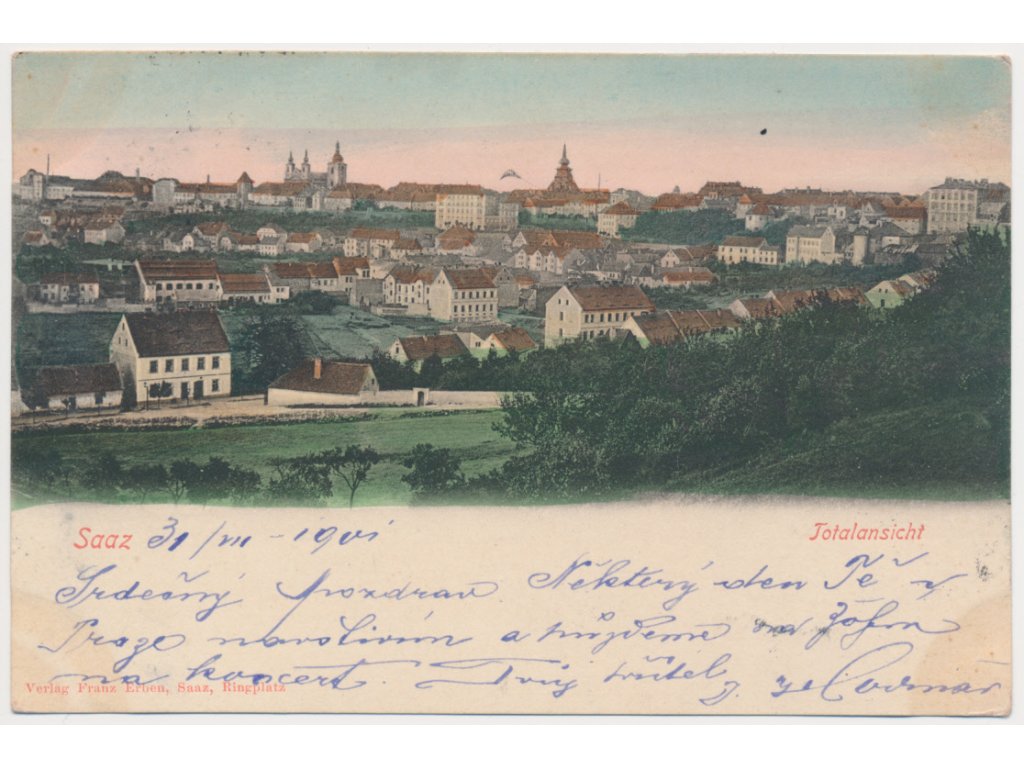 Saaz 31/VII - 1901
Totalansicht
Srdečný pozdrav Některý den Tě v
Praze navštívím a můžeme na Žofín
na koncert. Tvůj přítel J.
Verlag Franz Erben, Saaz, Ringplatz